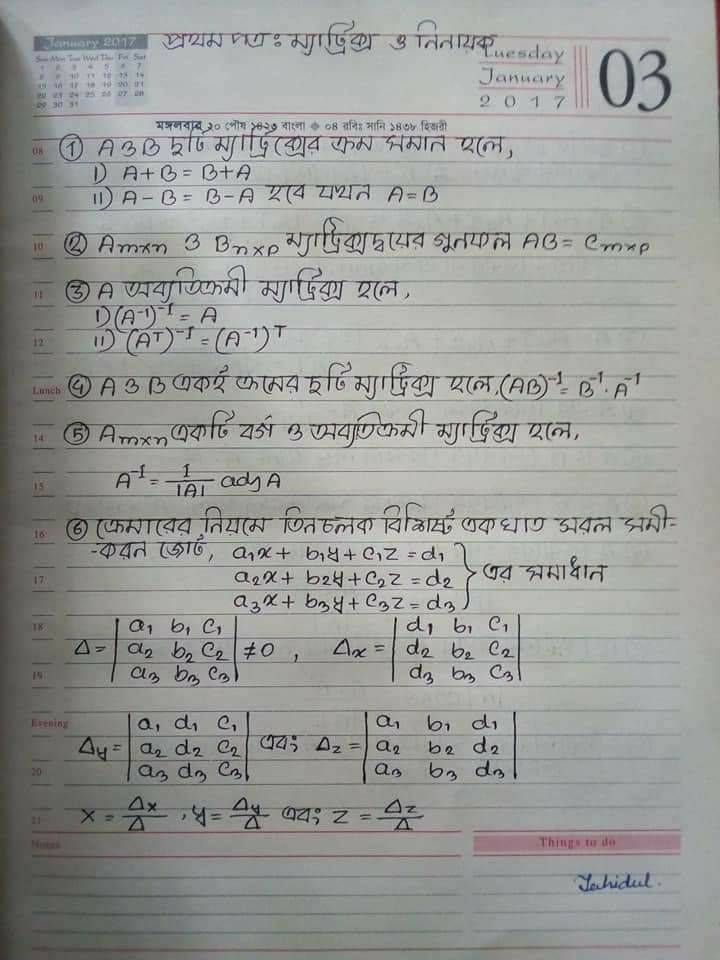 January 2017
Sun Mon Tue Wed Thu Fri Sat
1 2 3 4 5 6 7
8 9 10 11 12 13 14
15 16 17 18 19 20 21
22 23 24 25 26 27 28
29 30 31
প্রথম পত্র: ম্যাট্রিক্স ও নির্নায়ক
Tuesday
January
2017
03
মঙ্গলবার ২০ পৌষ ১৪২৩ বাংলা ◆ ০৪ রবিঃ সানি ১৪৩৮ হিজরী
08 ① A ও B দুটি ম্যাট্রিক্সের ক্রম সমান হলে,
I) A+B = B+A
09 II) A-B = B-A হবে যখন A=B
10 ② Amxn ও Bnxp ম্যাট্রিক্সদ্বয়ের গুনফল AB = Cmxp
11 ③ A অব্যতিক্রমী ম্যাট্রিক্স হলে,
I) (A⁻¹)⁻¹ = A
12 II) (Aᵀ)⁻¹ = (A⁻¹)ᵀ
Lunch ④ A ও B একই ক্রমের দুটি ম্যাট্রিক্স হলে, (AB)⁻¹ = B⁻¹. A⁻¹
14 ⑤ Amxn একটি বর্গ ও অব্যতিক্রমী ম্যাট্রিক্স হলে,
15 A⁻¹ = 1/|A| adj A
16 ⑥ ক্রেমারের নিয়মে তিনচলক বিশিষ্ট একঘাত সরল সমী-
-করন জোট, a₁x + b₁y + c₁z = d₁
17 a₂x + b₂y + c₂z = d₂ } এর সমাধান
a₃x + b₃y + c₃z = d₃
18 | a₁ b₁ c₁ | | d₁ b₁ c₁ |
Δ = | a₂ b₂ c₂ | ≠ 0 , Δx = | d₂ b₂ c₂ |
19 | a₃ b₃ c₃ | | d₃ b₃ c₃ |
Evening | a₁ d₁ c₁ | | a₁ b₁ d₁ |
Δy = | a₂ d₂ c₂ | এবং Δz = | a₂ b₂ d₂ |
20 | a₃ d₃ c₃ | | a₃ b₃ d₃ |
21 x = Δx/Δ , y = Δy/Δ এবং z = Δz/Δ
Notes
Things to do
Jahidul.